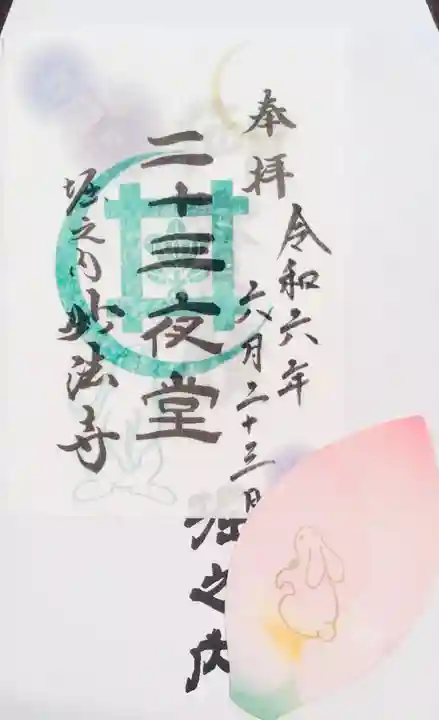 奉拝
令和六年
六月二十三日
二十三夜堂
堀之内妙法寺
堀之内